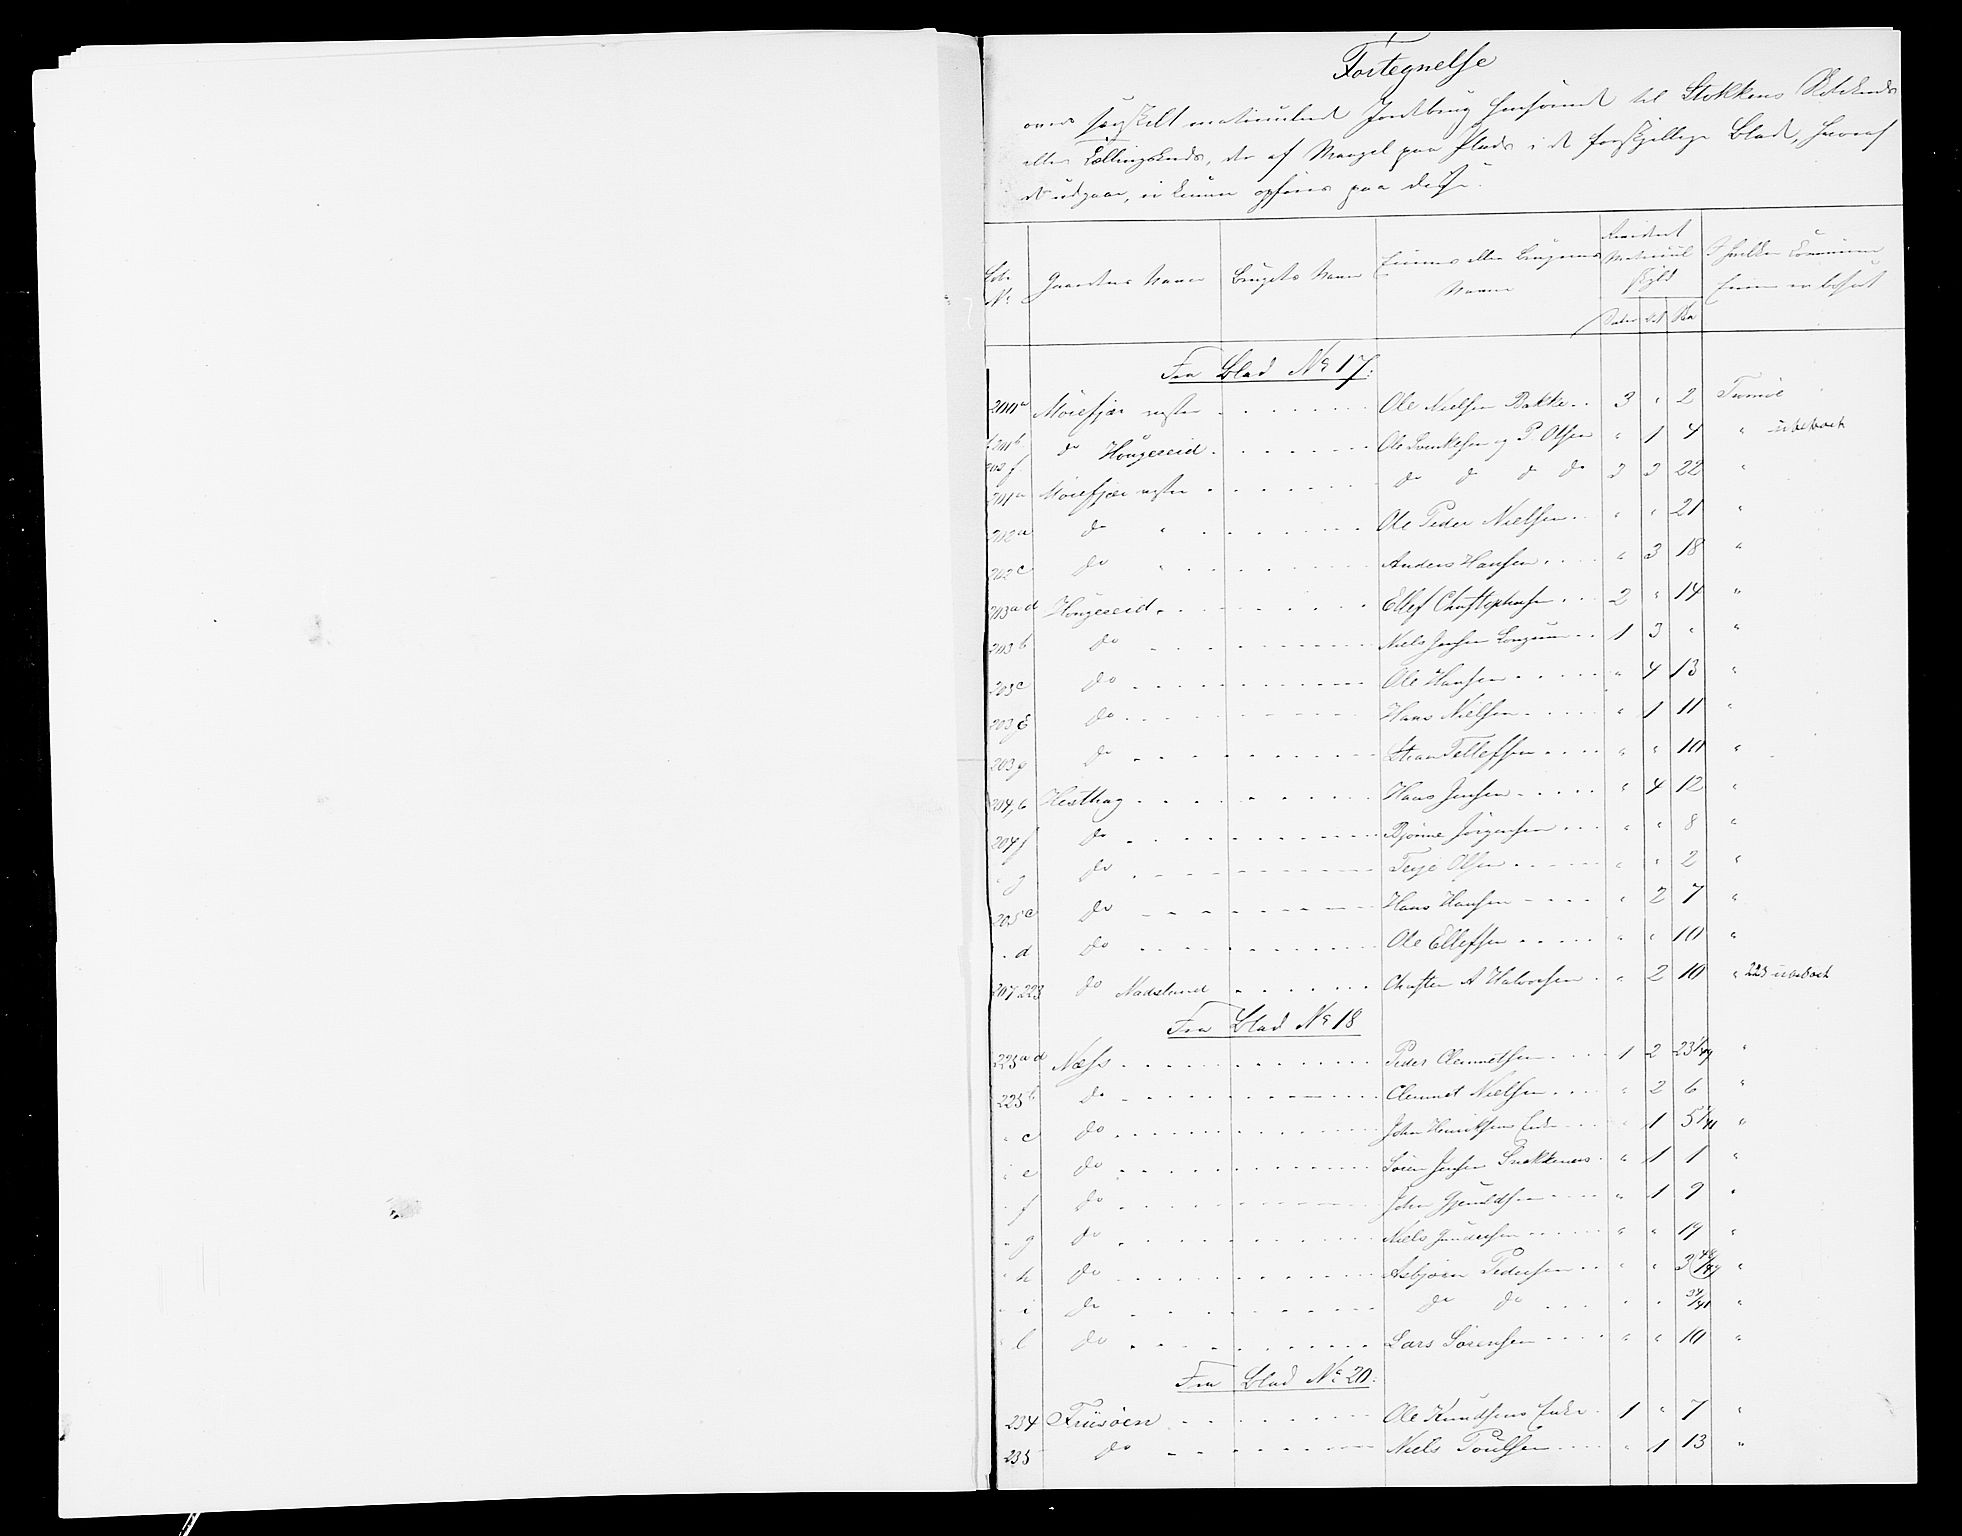 Fortegnelse
over særskilt matriculeret Jordbrug henhørende til Stokkens Skolekreds
eller Tællingskreds, der af Mangel paa Plads i de forskjellige Blad, hvoraf
de udgaar, ei kunne opføres paa disse.
Løbe No Gaardens Navn Brugets Navn Eierens eller Brugerens Navn Revideret Matricul Skyld I hvilken Commune Eieren er bosat
Daler Ort Sk
Fra Blad No 17:
200a Morefjær vestre Ole Nielsen Bakke 3 " 2 Tromø
201b do Hougeseid Ole Svenksen og P. Olsen " 1 4 " ubeboet
202 f.
201a Morefjær vestre do do do do 3 3 22 "
202a do " Ole Peder Nielsen " " 21 "
202c do " Anders Hansen " 3 18 "
203a d Hougeseid Ellef Christophersen 2 " 14 "
203b do Niels Jensen Longum 1 3 " "
203c do Ole Hansen " 4 13 "
203E do Hans Nielsen " 1 11 "
203g do Tellefsen " " 10 "
204,b Hesthag Hans Jensen " 4 12 "
204f do Bjønne Jørgensen " " 8 "
" g do Terje Olsen " " 2 "
205c do Hans Hansen " 2 7 "
" d do Ole Ellefsen " " 10 "
207.223 do Nadeland Christen A Halvorsen " 2 10 " 223 ubeboet
Fra Blad No 18
225a d Næss Peder Clemmetsen 1 2 23 "
225b do Clemmet Nielsen " 2 6 "
" c do John Henriksens Enke " 1 5 "
" e do Søren Jensen Snekkenes " 1 1 "
" f do John Gjeruldsen " 1 9 "
" g do Niels Gundersen " " 19 "
" h do Asbjørn Pedersen " " 3 "
" i do do do " " "
" l do Lars Sørensen " " 10 "
Fra Blad No 20:
234 Friisøen Ole Knudsens Enke 1 " 7 "
235 do Niels Poulsen " 1 13 "